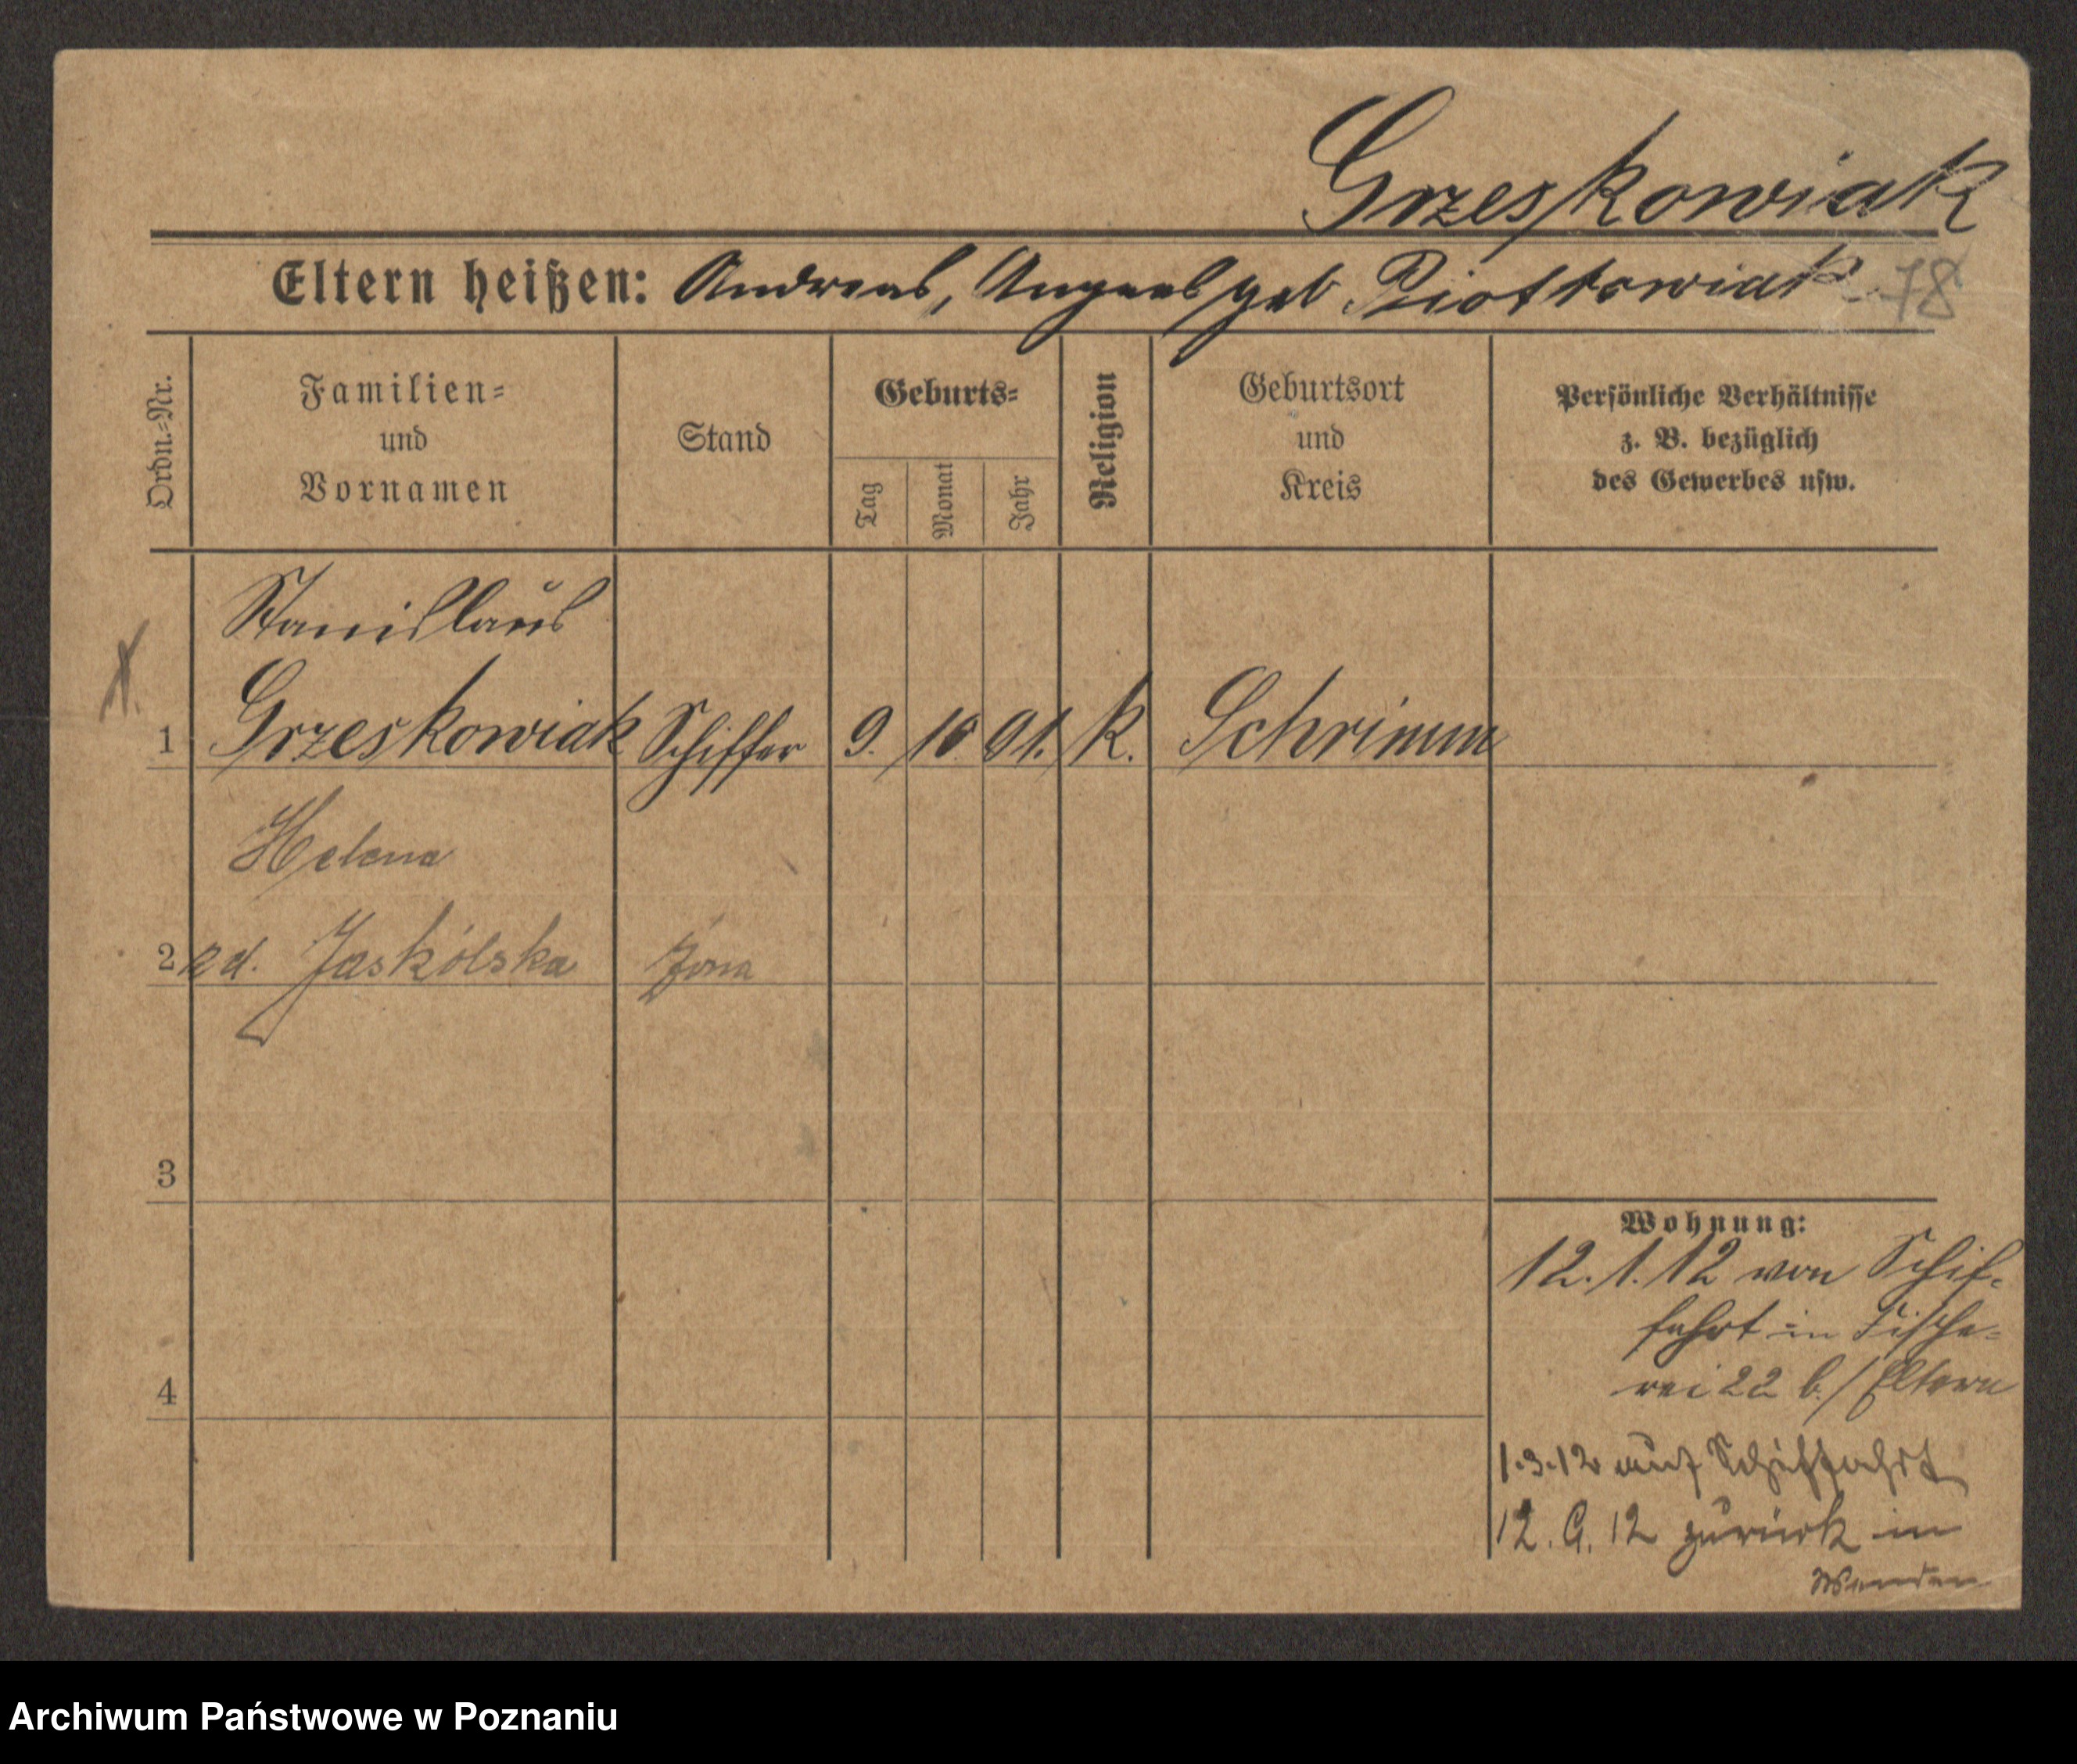 Grzeskowiak
Eltern heißen: Andreas, Agnes geb Piottowiak 78
Ordn.-Nr.
Familien-
und
Vornamen
Stand
Geburts-
Tag
Monat
Jahr
Religion
Geburtsort
und
Kreis
Persönliche Verhältnisse
z. B. bezüglich
des Gewerbes usw.
Stanislaus
1 Grzeskowiak Schiffer 9. 10 91. K. Schrimm
Helena
2 zd. Jaskólska żona
3
4
Wohnung:
12.1.12 von Schif-
fahrt in Fische-
rei 22 b./Eltern
1.3.12 auf Schiffahrt
12.9.12 zurück in
Archiwum Państwowe w Poznaniu